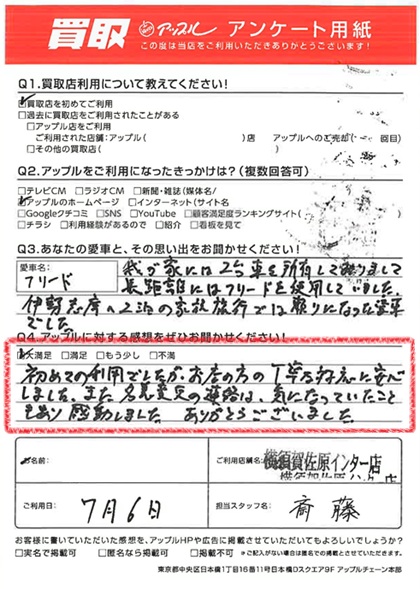 買取 アップル アンケート用紙
この度は当店をご利用いただきありがとうございます!
Q1.買取店利用について教えてください!
☑買取店を初めてご利用
□過去に買取店をご利用されたことがある
□アップル店をご利用
ご利用された店舗:アップル( )店 アップルへのご売却( 回目)
□その他の買取店( )
Q2.アップルをご利用になったきっかけは?(複数回答可)
□テレビCM □ラジオCM □新聞・雑誌(媒体名/
☑アップルのホームページ □インターネット(サイト名
□Googleクチコミ □SNS □YouTube □顧客満足度ランキングサイト(
□チラシ □利用経験があるので □紹介 □看板を見て
Q3.あなたの愛車と、その思い出をお聞かせください!
愛車名: フリード
我が家には2台車を所有して居りまして
長距離にはフリードを使用していました。
伊勢志摩への2泊の家族旅行では頼りになった愛車
でした。
Q4.アップルに対する感想をぜひお聞かせください!
☑大満足 □満足 □もう少し □不満
初めての利用でしたが、お店の方の丁寧な対応に安心
しました。また名義変更の連絡は、気になっていたこと
もあり感動しました。ありがとうございました。
お名前:
ご利用店舗名: 横須賀佐原インター店
ご利用日: 7月6日
担当スタッフ名: 斎藤
お客様に書いていただいた感想を、アップルHPや広告に掲載させていただいてもよろしいでしょうか?
□実名で掲載可 □匿名なら掲載可 □掲載不可 ※ご記入がない場合は匿名での掲載とさせていただきます。
東京都中央区日本橋1丁目16番11号日本橋Dスクエア9F アップルチェーン本部